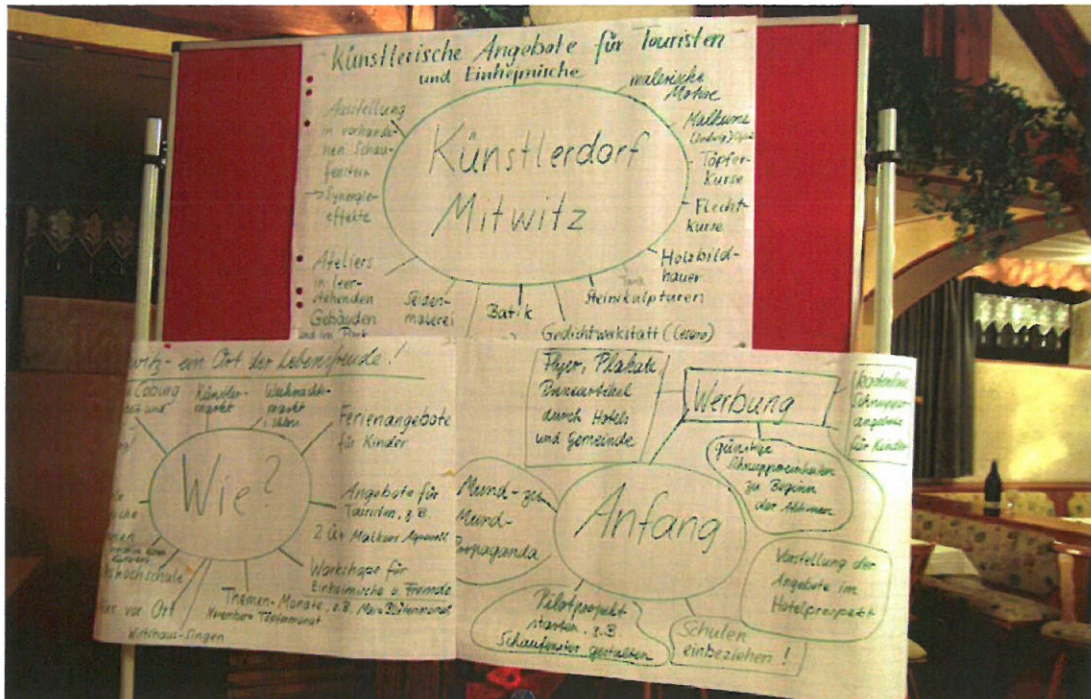 Künstlerische Angebote für Touristen
und Einheimische
Künstlerdorf
Mitwitz
Ausstellung
in vorhande-
nen Schau-
fenstern
→ Synergie-
effekte
Ateliers
in leer-
stehenden
Gebäuden
und im Park
Seiden-
malerei
Batik
Gedichtwerkstatt
Steinskulpturen
Holzbild-
hauer
Flecht-
kurse
Töpfer-
kurse
Malkurse
malerische
Motive
witz - ein Ort der Lebensfreude!
Wie?
Coburg
und
Künstler-
markt
Weihnachts-
markt
Ferienangebote
für Kinder
Angebote für
Touristen, z.B.
2 Malkurs Aquarell
Workshops für
Einheimische u. Fremde
Themen-Monate, z.B. Mai = Blütenmonat
November = Töpfermonat
Wirtshaus-Singen
vor Ort
hochschule
Anfang
Werbung
Flyer, Plakate
durch Hotels
und Gemeinde
Kostenlose
Schnupper-
angebote
für Kinder
günstige
Schnuppereinheiten
zu Beginn
der Aktionen
Mund-zu
Mund-
Propaganda
Vorstellung der
Angebote im
Hotelprospekt
Pilotprojekt
starten, z.B.
Schaufenster gestalten
Schulen
einbeziehen!